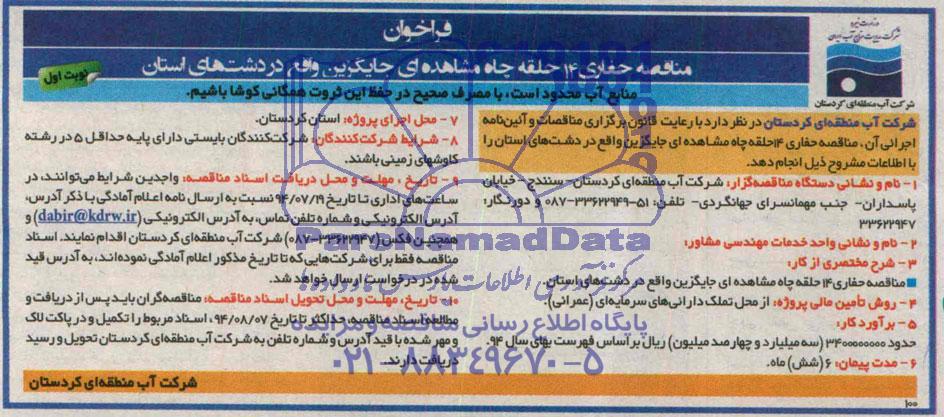 فراخوان
مناقصه حفاری ۱۴ حلقه چاه مشاهده ای جایگزین واقع در دشت‌های استان
منابع آب محدود است، با مصرف صحیح در حفظ این ثروت همگانی کوشا باشیم.
نوبت اول
وزارت نیرو
شرکت مدیریت منابع آب ایران
شرکت آب منطقه‌ای کردستان
شرکت آب منطقه‌ای کردستان در نظر دارد با رعایت قانون برگزاری مناقصات و آئین‌نامه
اجرائی آن، مناقصه حفاری ۱۴حلقه چاه مشاهده ای جایگزین واقع در دشت‌های استان را
با اطلاعات مشروح ذیل انجام دهد.
۱- نام و نشانی دستگاه مناقصه‌گزار: شرکت آب منطقه‌ای کردستان- سنندج- خیابان
پاسداران- جنب مهمانسرای جهانگردی- تلفن: ۵۱-۳۳۶۲۲۹۴۹-۰۸۷ و دورنگار:
۳۳۶۲۲۹۴۷
۲- نام و نشانی واحد خدمات مهندسی مشاور:
۳- شرح مختصری از کار:
مناقصه حفاری ۱۴ حلقه چاه مشاهده ای جایگزین واقع در دشت‌های استان.
۴- روش تأمین مالی پروژه: از محل تملک دارائی‌های سرمایه‌ای (عمرانی).
۵- برآورد کار:
حدود ۳۴۰۰۰۰۰۰۰۰ (سه میلیارد و چهارصد میلیون) ریال بر اساس فهرست بهای سال ۹۴.
۶- مدت پیمان: ۶ (شش) ماه.
۷- محل اجرای پروژه: استان کردستان.
۸- شرایط شرکت‌کنندگان: شرکت‌کنندگان بایستی دارای پایه حداقل ۵ در رشته
کاوشهای زمینی باشند.
۹- تاریخ، مهلت و محل دریافت اسناد مناقصه: واجدین شرایط می‌توانند، در
ساعت‌های اداری تا تاریخ ۹۴/۰۷/۱۹ نسبت به ارسال نامه اعلام آمادگی با ذکر آدرس،
آدرس الکترونیکی و شماره تلفن تماس، به آدرس الکترونیکی (dabir@kdrw.ir) و
همچنین فکس (۳۳۶۲۲۹۴۷-۰۸۷) شرکت آب منطقه‌ای کردستان اقدام نمایند. اسناد
مناقصه فقط برای شرکت‌هایی که تا تاریخ مذکور اعلام آمادگی نموده‌اند، به آدرس قید
شده در درخواست ارسال خواهد شد.
۱۰- تاریخ، مهلت و محل تحویل اسناد مناقصه: مناقصه‌گران باید پس از دریافت و
مطالعه اسناد مناقصه، حداکثر تا تاریخ ۹۴/۰۸/۰۷، اسناد مربوط را تکمیل و در پاکت لاک
و مهر شده با قید آدرس و شماره تلفن به شرکت آب منطقه‌ای کردستان تحویل و رسید
دریافت دارند.
شرکت آب منطقه‌ای کردستان
۱۰۰
ParsNamadData
پایگاه اطلاع رسانی مناقصه و مزایده
۰۲۱-۸۸۳۴۹۶۷۰-۵